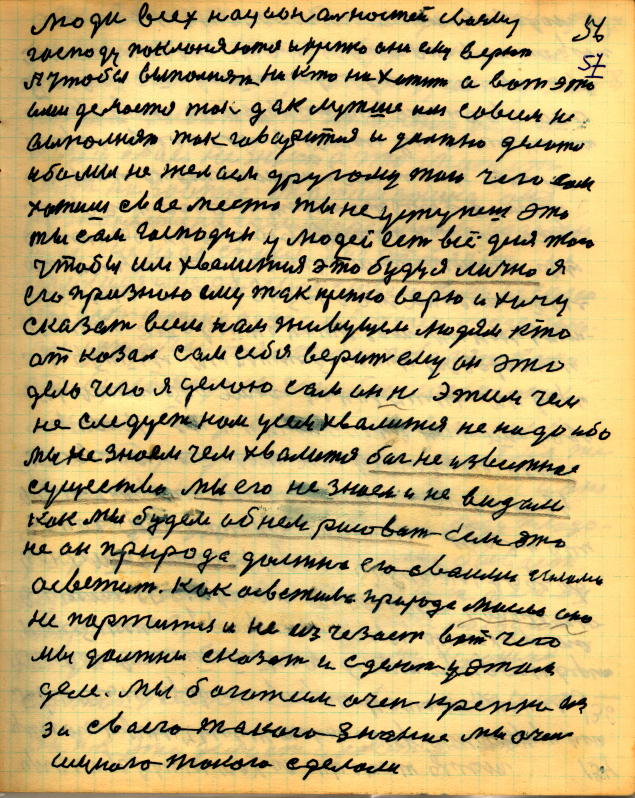 Люди всех национальностей своему 56
господу поклоняются и крепко они ему верят 57
А чтобы выполнят ни кто ни хотит а вот это
или делается так дак лутше им совсем не
выполнят так говарится и должно делатс
ибо мы не желаем другому таго чего сам
хотиш свае место ты не уступеш это
ты сам господин у людей ест всё для того
чтобы им хвалится это будуя лично я
его признаю ему так крепко верю и хочу
сказат всем нам живущем людям кто
отказал сам себя верит ему он это
дело чего я делаю сам он н этим чем
не следует нам усем хвалится не надо ибо
мы не знаем чем хвалится бог не известное
существо мы его не знаем и не видали
как мы будем об нем рисоват если это
не он природа должна его сваими силами
осветит. Как осветила природа мысль она
не портится и не изчезает вот чего
мы должны сказат и сделат у этом
деле. мы богатеем очен крепко из
за своего такого знание мы очен
много такого сделали